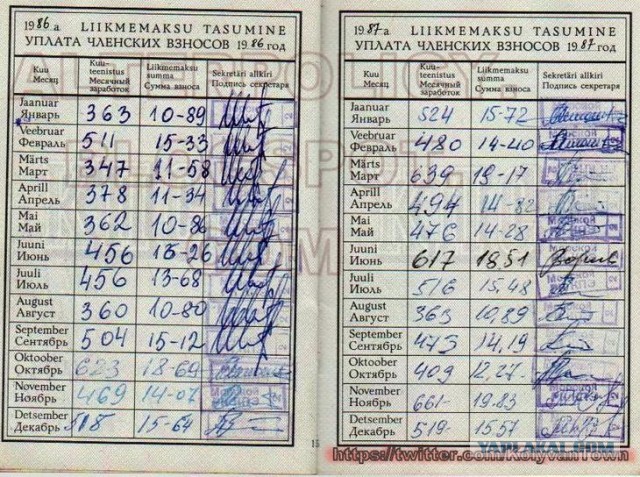 1986 a. LIIKMEMAKSU TASUMINE
УПЛАТА ЧЛЕНСКИХ ВЗНОСОВ 1986 год
Kuu Месяц Kuu-teenistus Месячный заработок Liikmemaksu summa Сумма взноса Sekretäri allkiri Подпись секретаря
Jaanuar Январь 363 10-89
Veebruar Февраль 511 15-33
Märts Март 347 11-58
Aprill Апрель 378 11-34
Mai Май 362 10-86
Juuni Июнь 456 -26
Juuli Июль 456 13-68
August Август 360 10-80
September Сентябрь 504 15-12
Oktoober Октябрь 623 18-69
November Ноябрь 469 14-07
Detsember Декабрь 15-64
15
1987 a. LIIKMEMAKSU TASUMINE
УПЛАТА ЧЛЕНСКИХ ВЗНОСОВ 1987 год
Kuu Месяц Kuu-teenistus Месячный заработок Liikmemaksu summa Сумма взноса Sekretäri allkiri Подпись секретаря
Jaanuar Январь 524 15-72
Veebruar Февраль 480 14-40
Märts Март 639 19-17
Aprill Апрель 494 14-82
Mai Май 476 14-28 Морской
Juuni Июнь 617 18,51
Juuli Июль 516 15,48
August Август 363 10,89
September Сентябрь 473 14,19
Oktoober Октябрь 409 12,27-
November Ноябрь 661- 19.83
Detsember Декабрь 519- 15.57
https://twitter.com/KolyvanTown